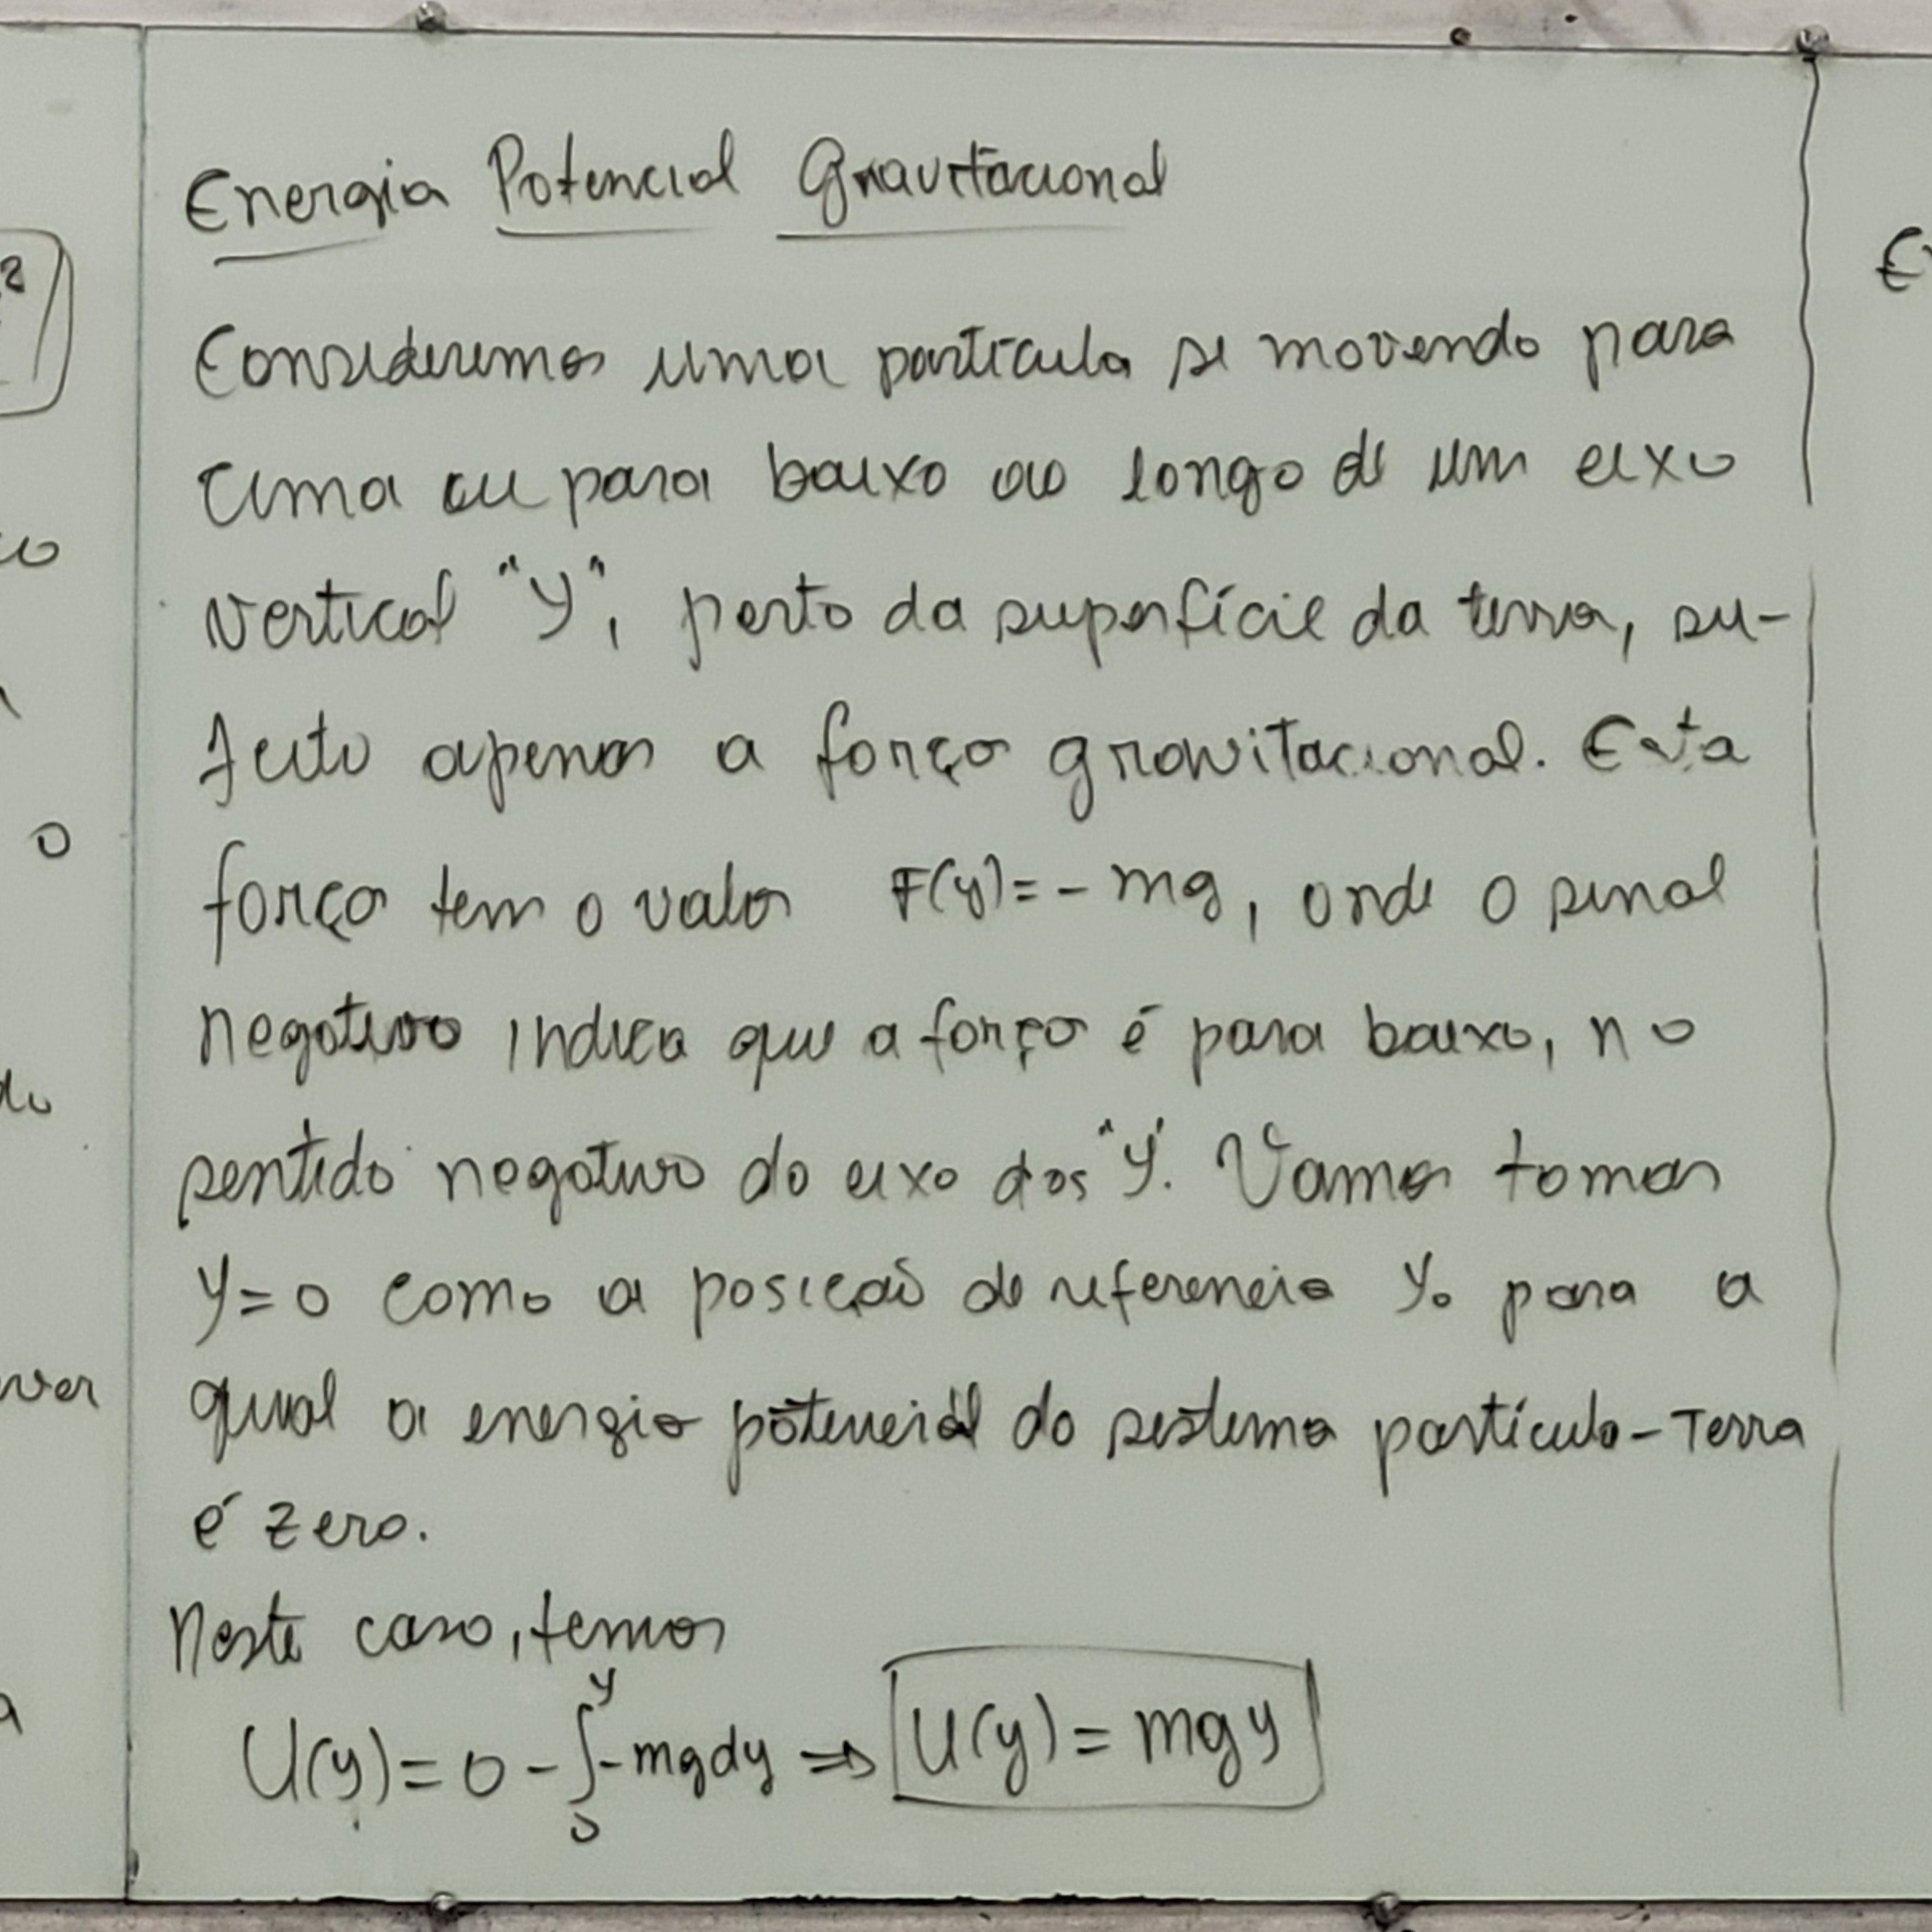 Energia Potencial Gravitacional
Consideremos uma partícula se movendo para
cima ou para baixo ao longo de um eixo
vertical "y", perto da superfície da terra, su-
jeito apenas a força gravitacional. Esta
força tem o valor F(y) = - mg, onde o sinal
negativo indica que a força é para baixo, no
sentido negativo do eixo dos "y". Vamos tomar
y = 0 como a posição de referencia y₀ para a
qual a energia potencial do sistema partícula-Terra
é zero.
Neste caso, temos
U(y) = 0 - ∫₀ʸ - mg dy ⇒ U(y) = mgy